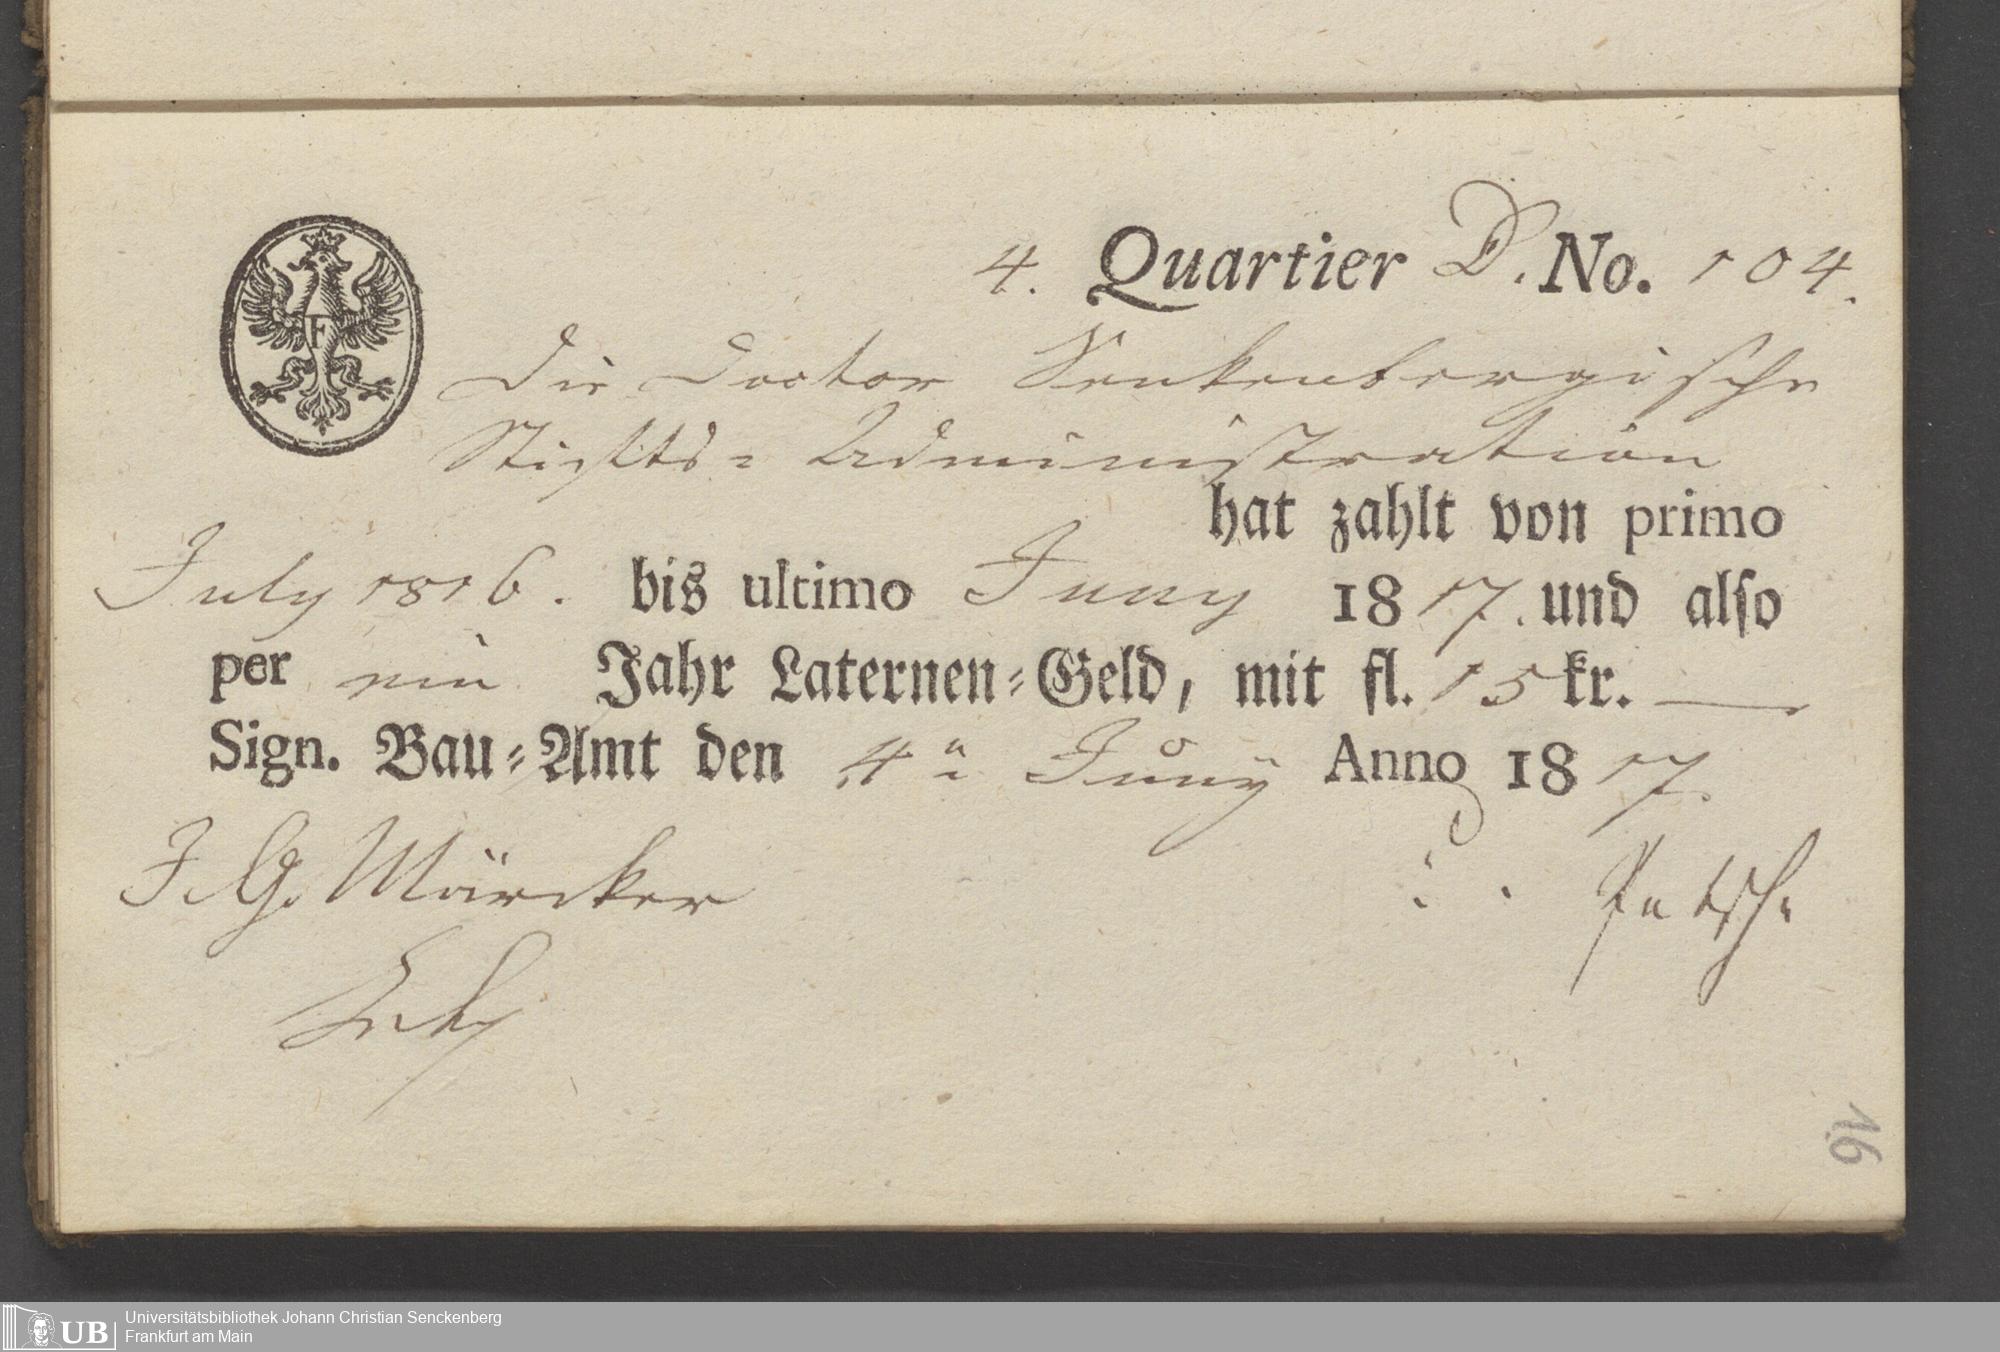 4. Quartier D. No. 104.
F
Die Doctor Senkenbergische
Stiffts= Administration
hat zahlt von primo
July 1816. bis ultimo Juny 1817. und also
per ein Jahr Laternen=Geld, mit fl. 15 kr. —
Sign. Bau=Amt den 4n Juny Anno 1817.
J. G. Märcker
16
UB
Universitätsbibliothek Johann Christian Senckenberg
Frankfurt am Main